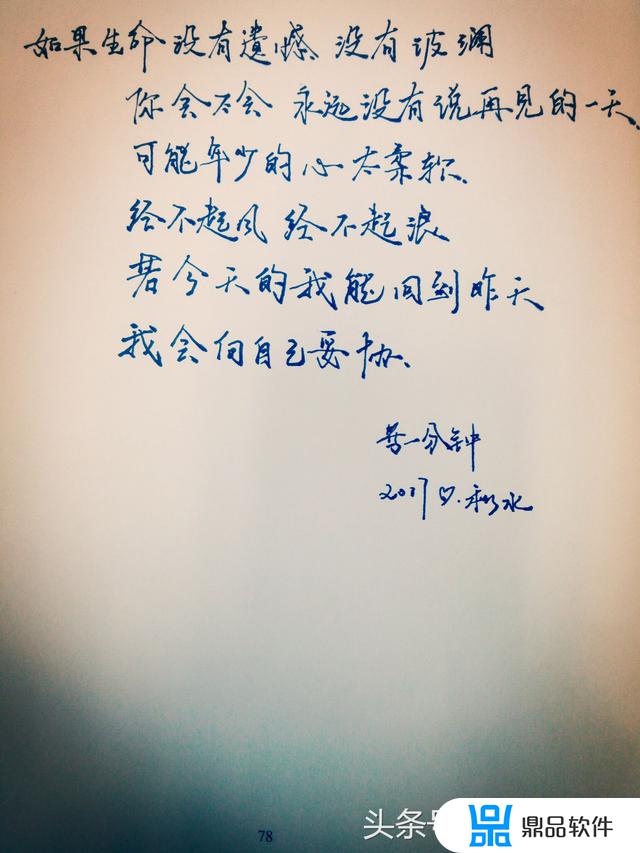 如果生命没有遗憾、没有波澜
你会不会 永远没有说再见的一天
可能年少的心太柔软、
经不起风 经不起浪
若今天的我能回到昨天
我会向自己妥协、
若一分钟
2017
78
头条号
鼎品软件